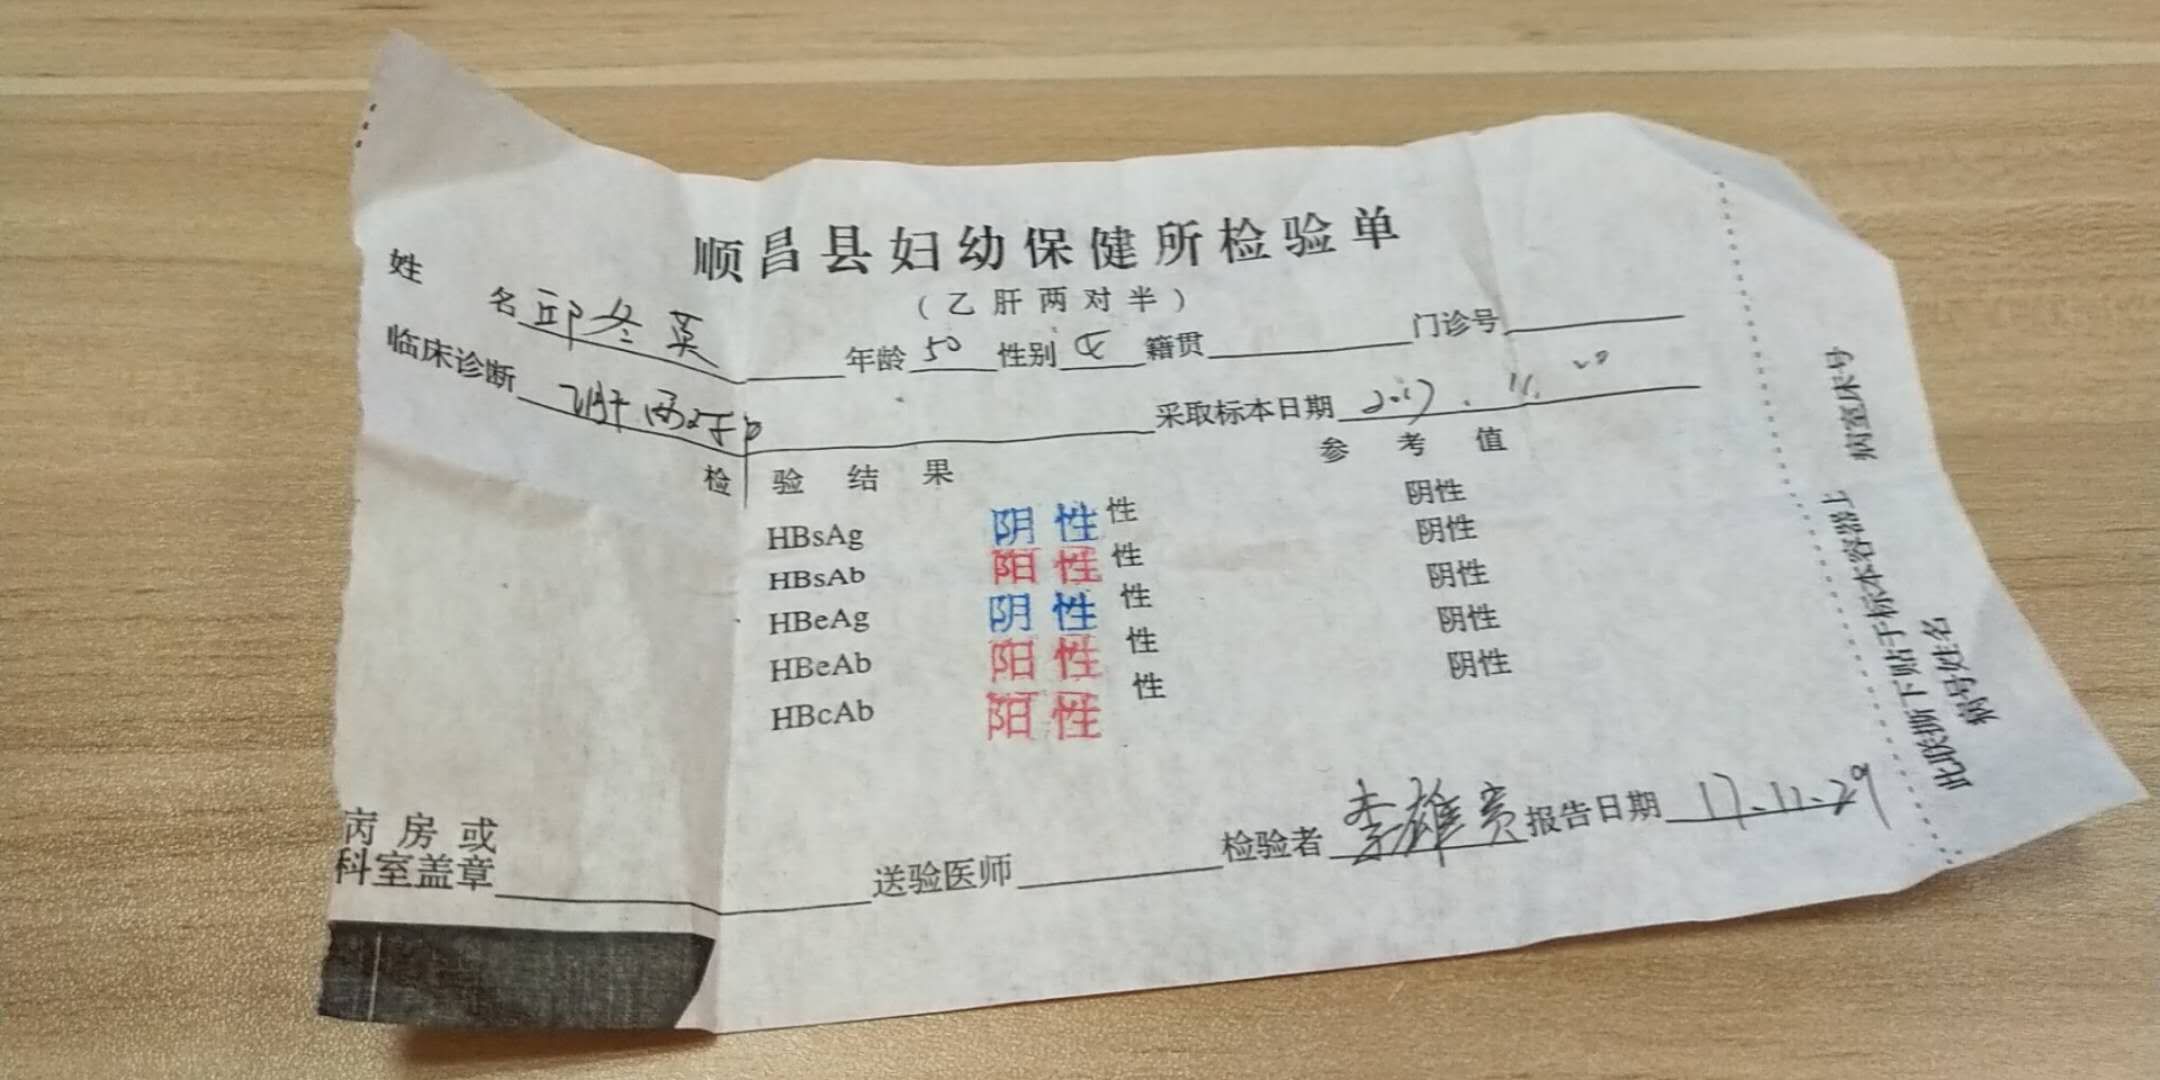 顺昌县妇幼保健所检验单
（乙肝两对半）
姓 名 邱冬英 年龄 50 性别 女 籍贯 门诊号
临床诊断 乙肝两对半 采取标本日期 2017.11.
检验结果 参考值
HBsAg 阴性 性 阴性
HBsAb 阳性 性 阴性
HBeAg 阴性 性 阴性
HBeAb 阳性 性 阴性
HBcAb 阳性 性 阴性
病房或
科室盖章 送验医师 检验者 李雄 报告日期 17.11.29
病室床号
此联撕下贴于标本容器上
病号姓名